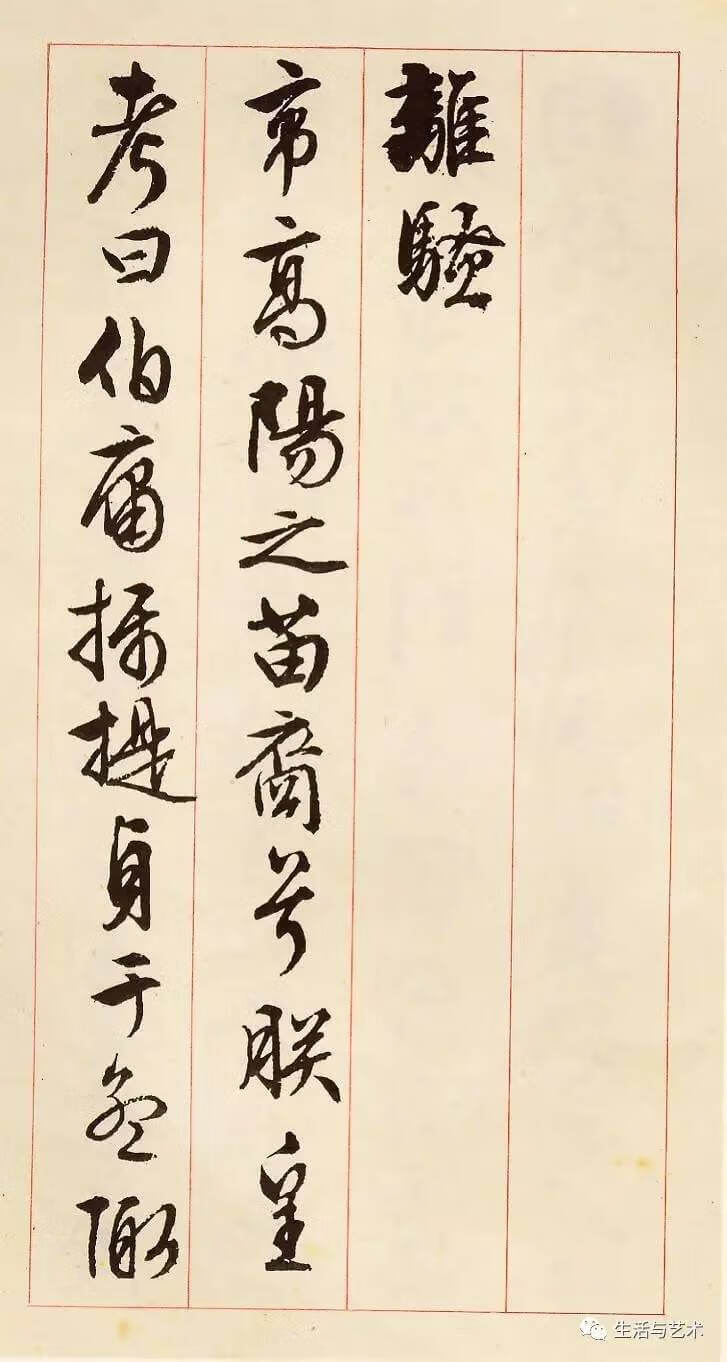 離騷
帝高陽之苗裔兮朕皇
考曰伯庸攝提貞于孟陬
生活与艺术